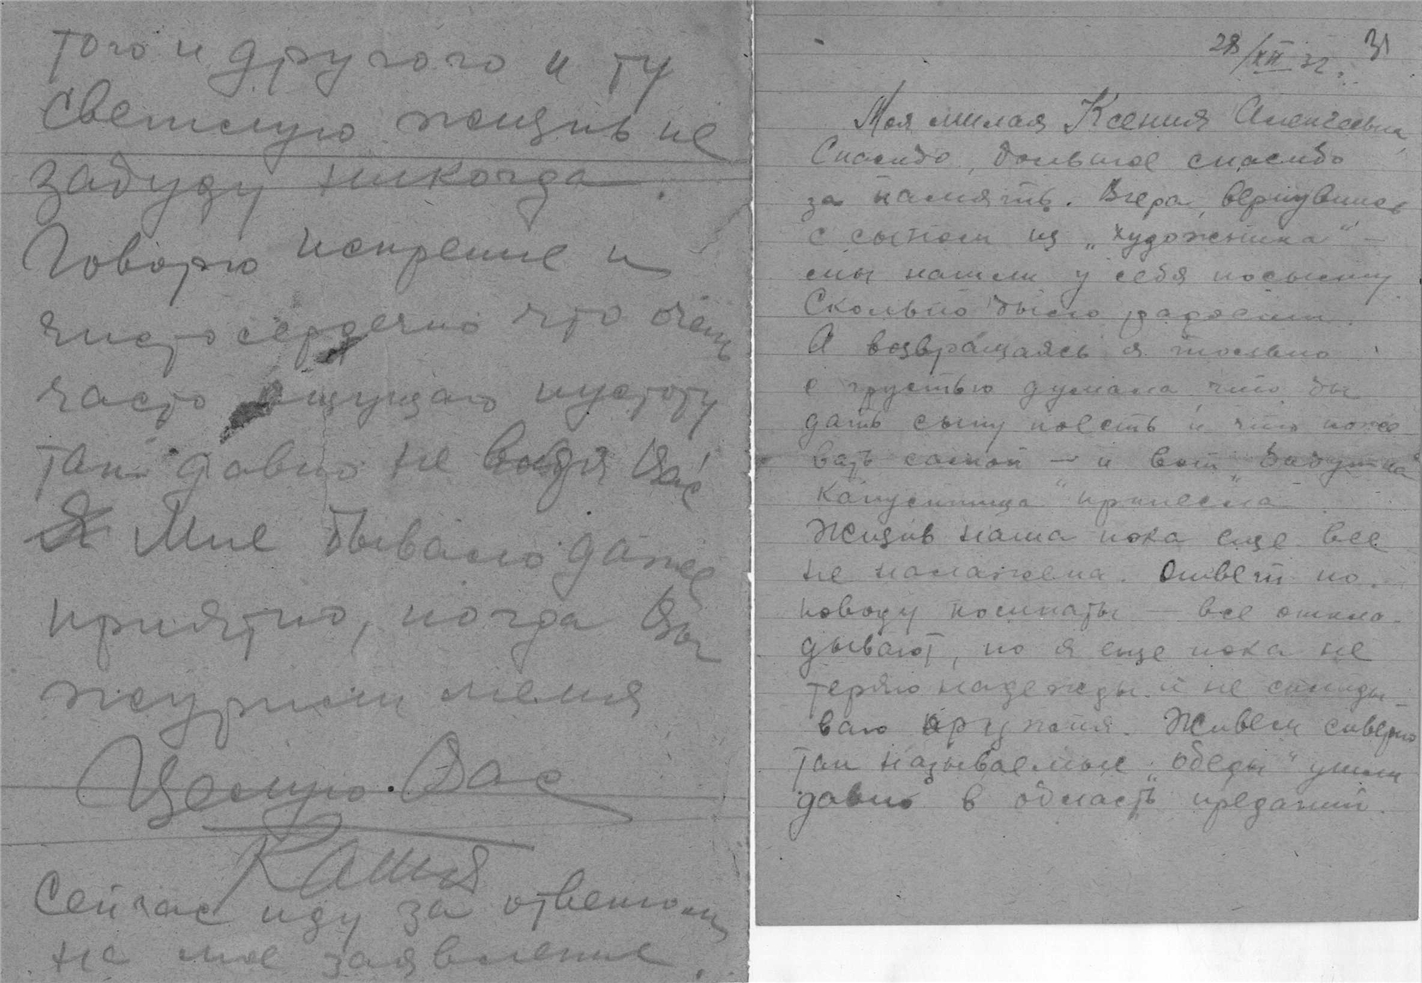 того и другого и ту
светлую жизнь не
забуду никогда.
Говорю искренне и
чистосердечно что очень
часто ощущаю пустоту
так давно не видя Вас
Мне бывало даже
приятно, когда Вы
журили меня
Целую Вас
Катя
Сейчас иду за ответом
на мое заявление.
28/XII 32. 31
Моя милая Ксения Алексеевна,
Спасибо, большое спасибо
за память. Вчера, вернувшись
с сыном из „Художника" –
мы нашли у себя посылку
Сколько было радости.
А возвращаясь я только
с грустью думала что бы
дать сыну поесть и что
вать самой — и вот „бабушка
капустница" принесла
Жизнь наша пока еще все
не налажена. Ответ по
поводу комнаты — все откла-
дывают, но я еще пока не
теряю надежды и не склады
ваю оружия. Живем скверно
так называемые „обеды" ушли
давно в область преданий.